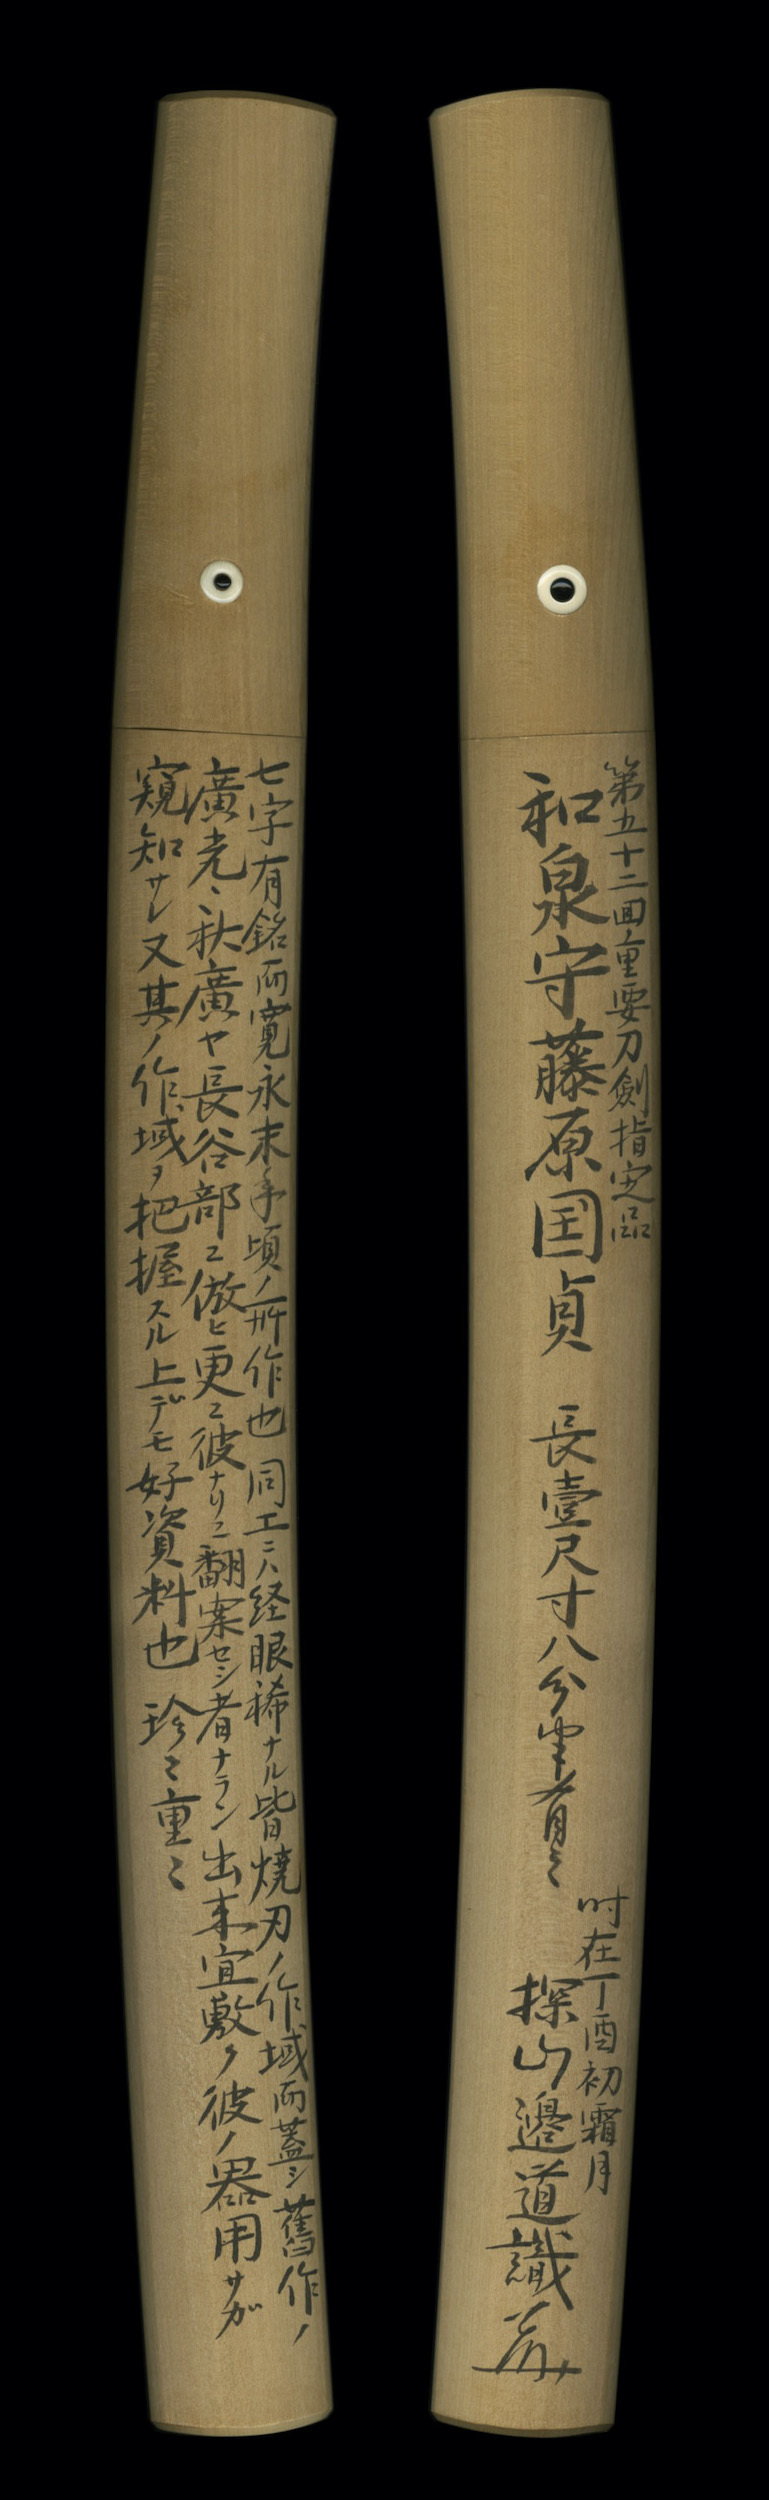 第五十二回重要刀劍指定品
和泉守藤原国貞 長壹尺寸八分半有之
时在丁酉初霜月
探山邉道識
七字有銘而寛永末年頃ノ所作也 同工ニハ経眼稀ナル皆焼刃ノ作域而蓋シ舊作ノ
廣光、秋廣ヤ長谷部ニ倣ヒ更ニ彼ナリニ翻案セシ者ナラン 出来宜敷ク彼ノ器用サガ
窺知サレ又其ノ作域ヲ把握スル上デモ好資料也 珍々重々